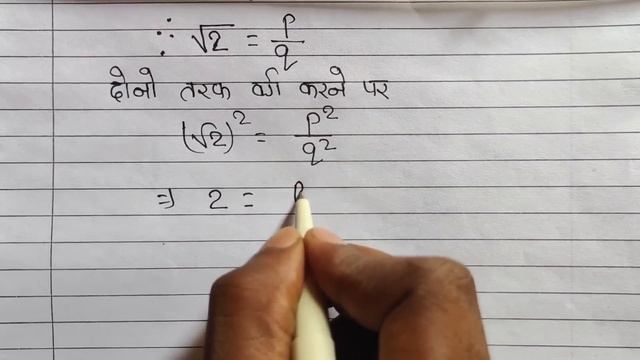 ∵ √2 = p/q
दोनो तरफ वर्ग करने पर
(√2)² = p²/q²
⇒ 2 = p